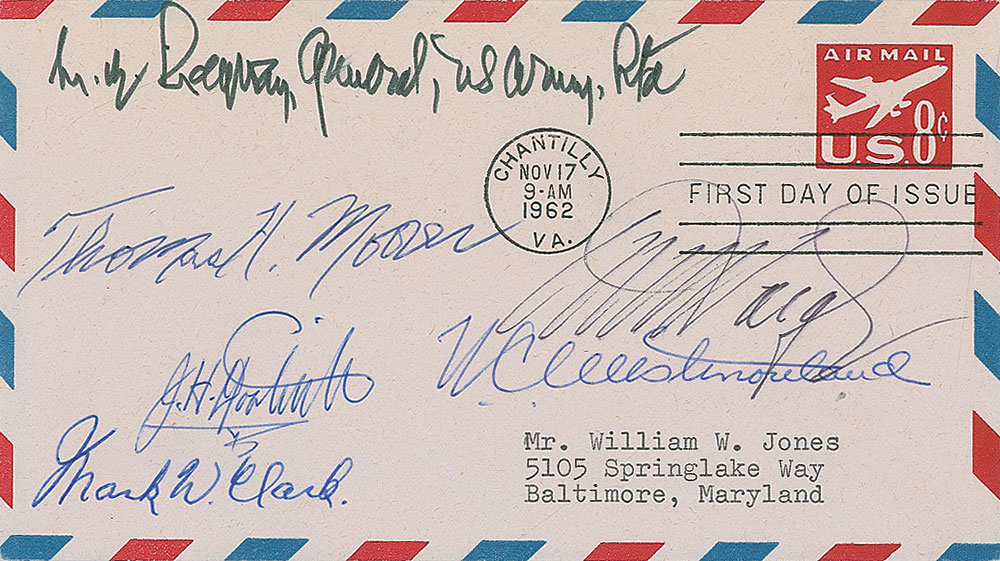 M. B. Ridgway, General, US Army, Rtd
AIR MAIL
U.S. 8¢
CHANTILLY
NOV 17
9-AM
1962
VA.
FIRST DAY OF ISSUE
Thomas H. Moorer
W C Westmoreland
J.H. Doolittle
Mark W. Clark.
Mr. William W. Jones
5105 Springlake Way
Baltimore, Maryland